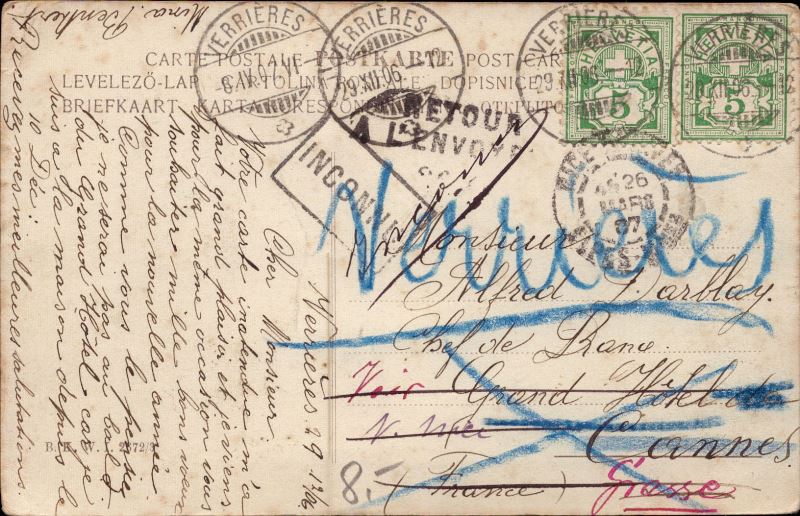 CARTE POSTALE — POSTKARTE — POST CARD
LEVELEZŐ-LAP
BRIEFKAART
VERRIÈRES
VERRIÈRES
29.XII.06
VERRIÈRES
29.XII.06
VERRIÈRES
HELVETIA
5
HELVETIA
5
RETOUR
A L'ENVOYEUR
INCONNU
NICE
26
MARS
07
Verrières
Inconnu
Monsieur
Alfred Darblay.
Chef de Rang
Voir Grand Hôtel de
Cannes
(France) Grasse
8.-
B. K. W. I. 2372/3
Verrières 29 12/06
Cher Monsieur
Votre carte inatendue m'a
fait grand plaisir et je viens
par la même occasion vous
souhaiter mille bons vœux
pour la nouvelle année
Comme vous le pensez
je ne serai pas au bal
du Grand Hôtel car je
suis à la maison depuis le
10 Déc.
Recevez mes meilleures salutations.
Mina